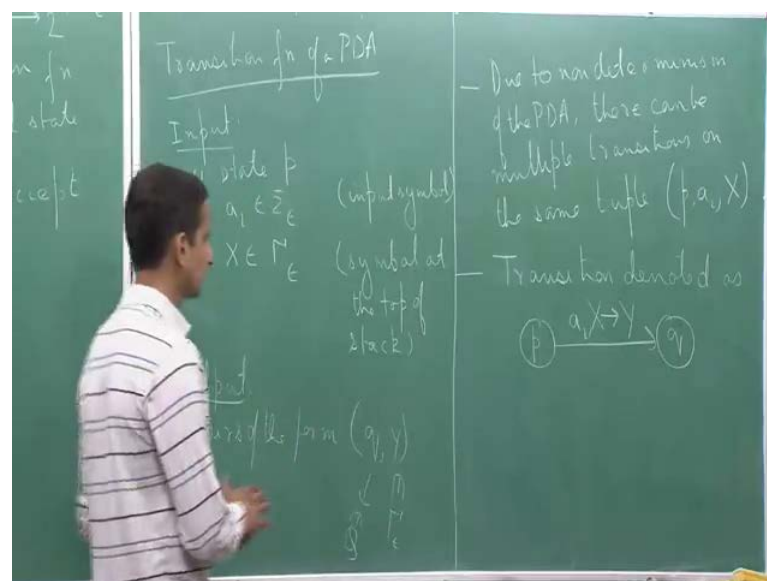 2
n fn
state
ccept
Transition fn of a PDA
Input:
state p
a, ∈ Σ_ε (input symbol)
X ∈ Γ_ε (symbol at
the top of
stack)
put:
of the form (q, Y)
Q Γ_ε
— Due to non determinism
of the PDA, there can be
multiple transitions on
the same tuple (p, a, X)
— Transition denoted as
p a, X → Y q